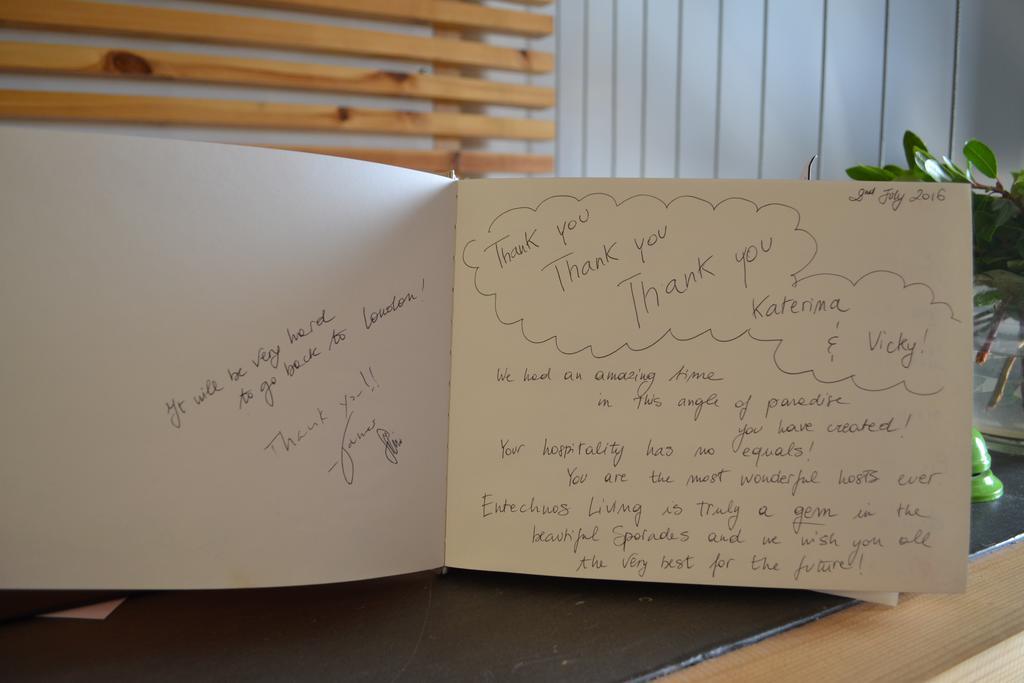 It will be very hard
to go back to London!
Thank you!!
James
2nd July 2016
Thank you
Thank you
Thank you
Katerina
&
Vicky!
We had an amazing time
in this angle of paradise
you have created!
Your hospitality has no equals!
You are the most wonderful hosts ever.
Entechnos Living is truly a gem in the
beautiful Sporades and we wish you all
the very best for the future!